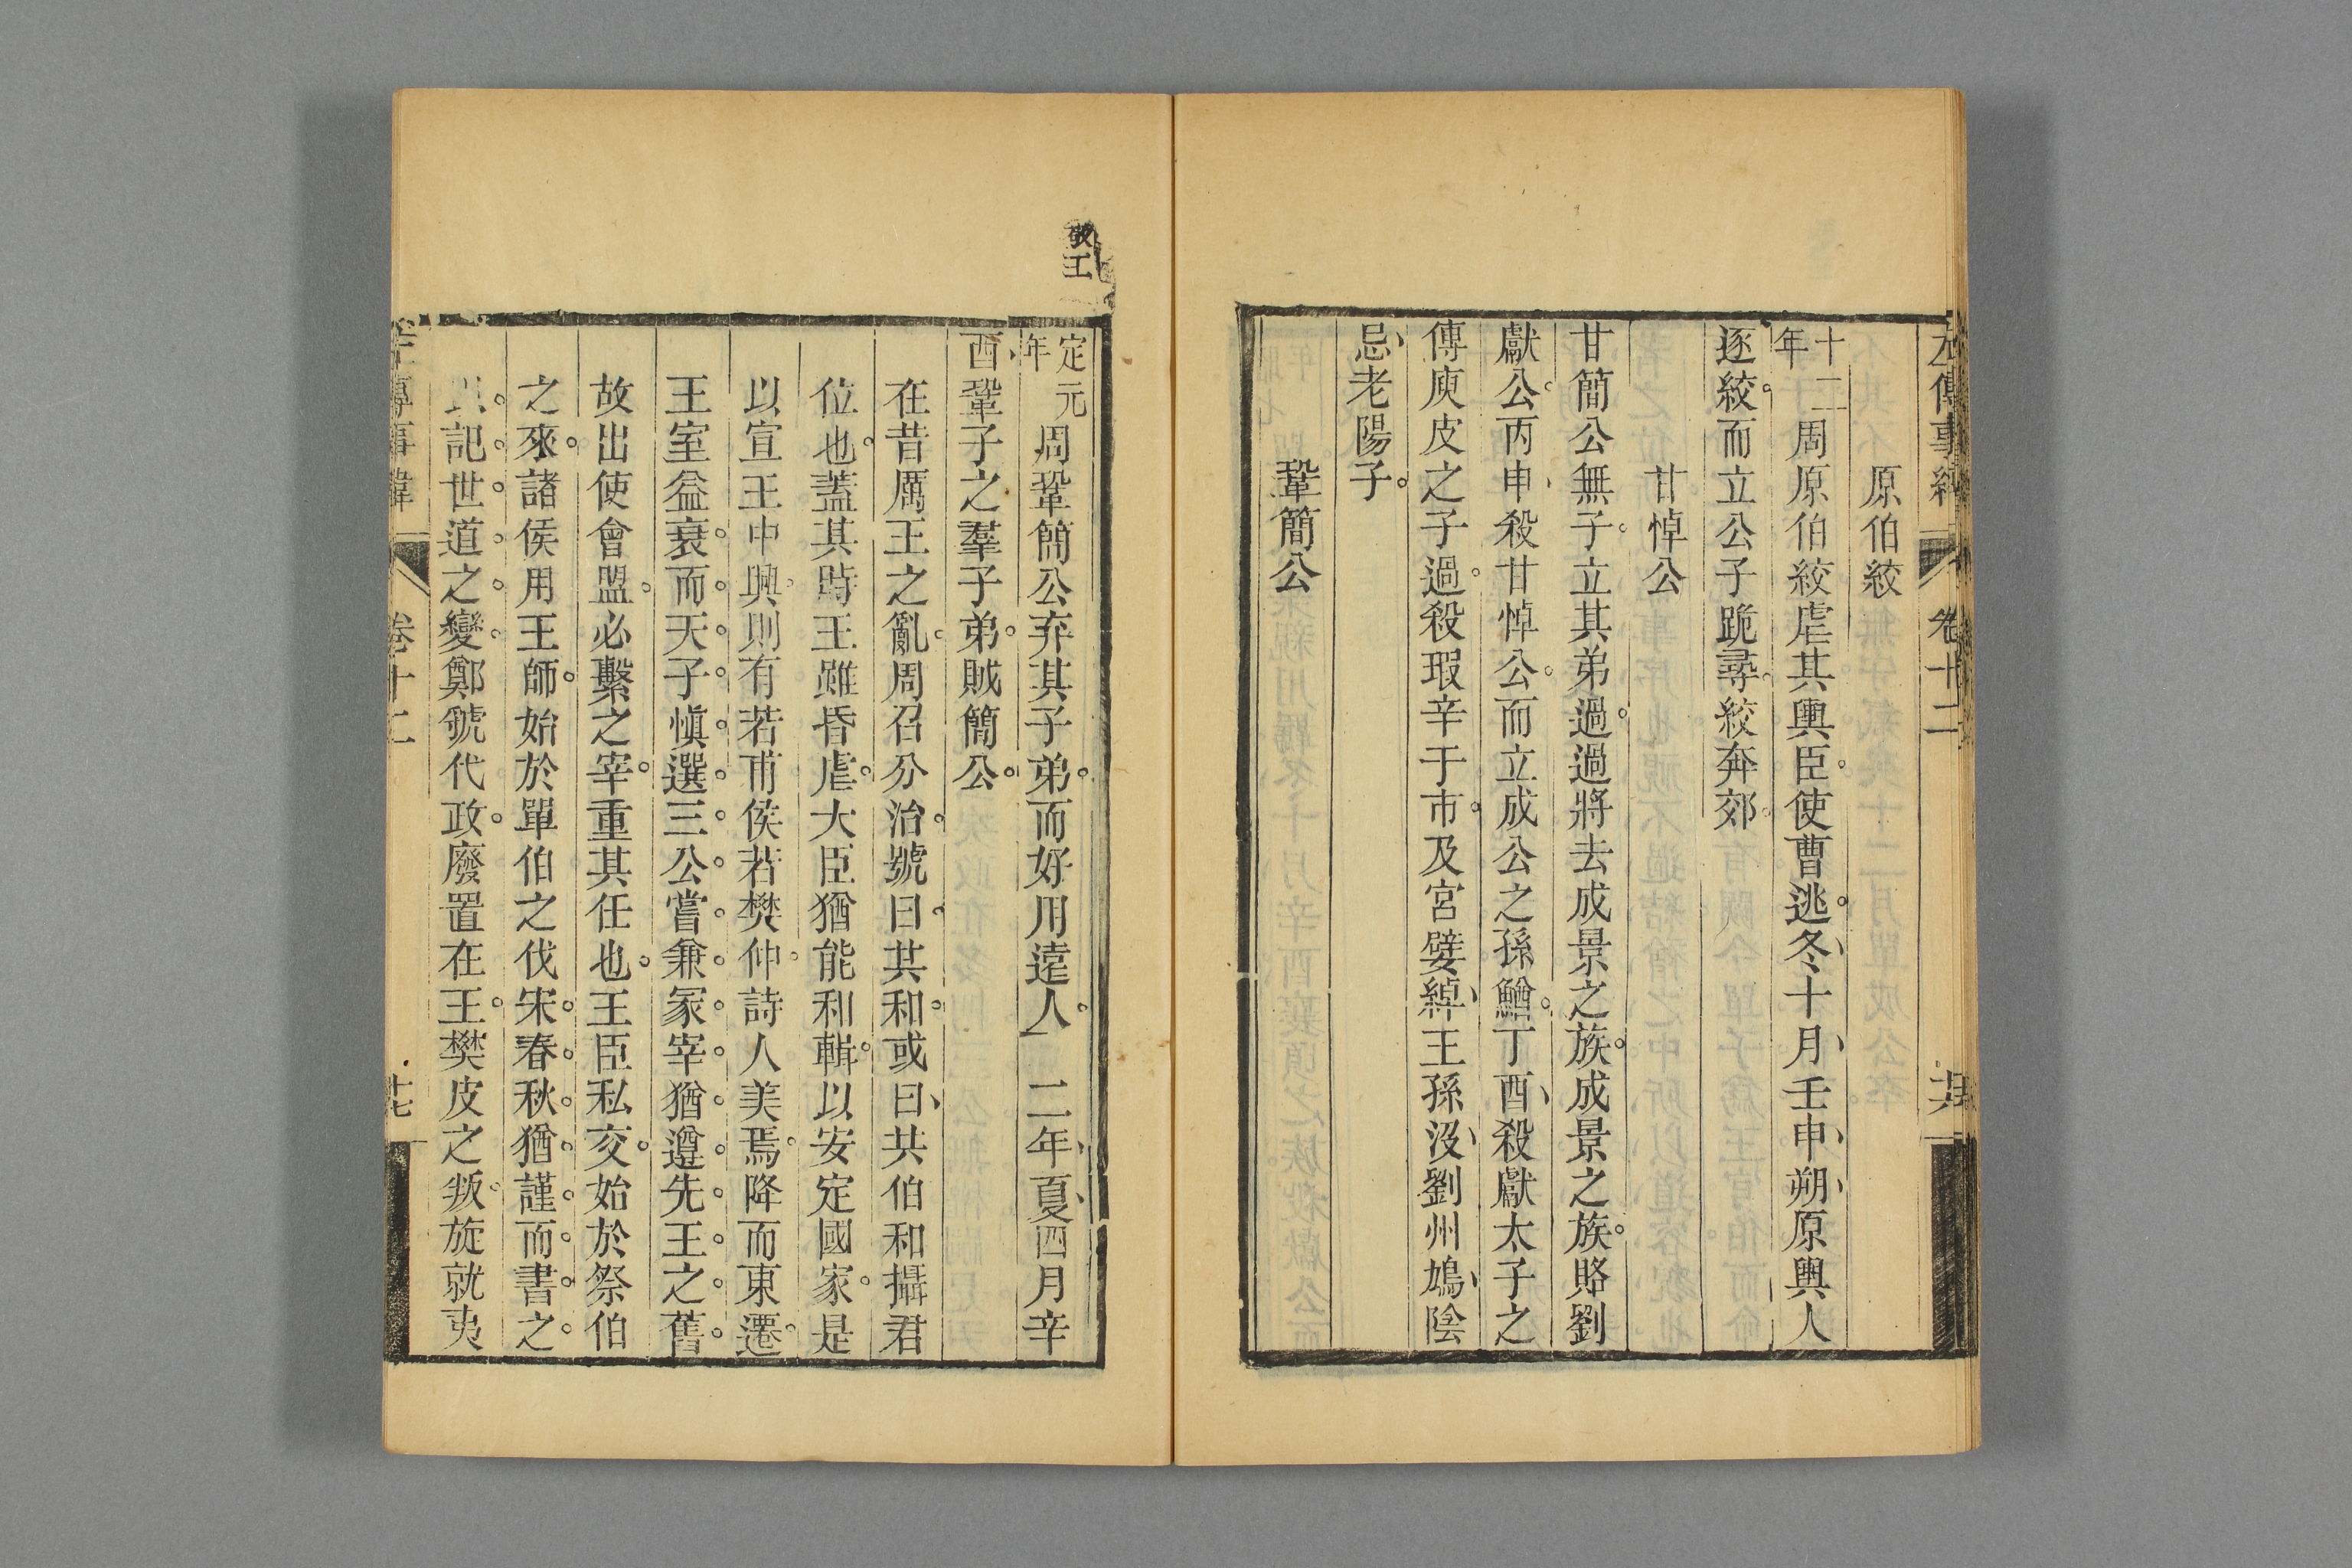 左傳事緯
卷十二
十六
原伯絞
十二年
周原伯絞虐其輿臣。使曹逃。冬、十月、壬申、朔、原輿人
逐絞。而立公子跪尋。絞奔郊。
甘悼公
甘簡公無子。立其弟過。過將去成景之族。成景之族。賂劉
獻公。丙申、殺甘悼公。而立成公之孫鰌。丁酉、殺獻太子之
傅庾皮之子過。殺瑕辛于市。及宮嬖綽、王孫沒、劉州鳩、陰
忌、老陽子。
鞏簡公
敬王
定元年
周鞏簡公弃其子弟。而好用遠人。 二年、夏、四月辛
酉、鞏子之羣子弟。賊簡公。
在昔厲王之亂。周召分治。號曰。其和。或曰、共伯和攝君
位也。蓋其時王雖昏虐。大臣猶能和輯。以安定國家。是
以宣王中興。則有若甫侯若樊仲。詩人美焉。降而東遷。
王室益衰。而。天。子。慎。選。三。公。嘗。兼。冢。宰。猶。遵。先。王。之。舊。
故出使會盟。必繫之宰。重其任也。王臣私交。始於祭伯
之來。諸侯用王師。始於單伯之伐宋。春。秋。猶。謹。而。書。之。
以。記。世。道。之。變。鄭虢代政。廢置在王。樊皮之叛。旋就夷
左傳事緯
卷十二
十七